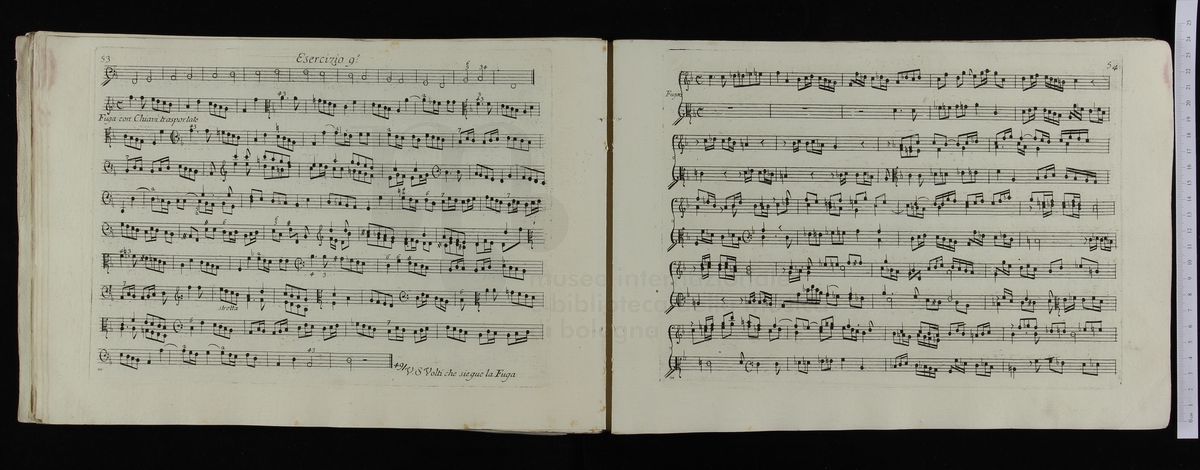 53
Esercizio 9º
Fuga con Chiavi trasportate
stretta
V.S Volti che siegue la Fuga
54
Fuga
museo internazionale
e biblioteca
di bologna